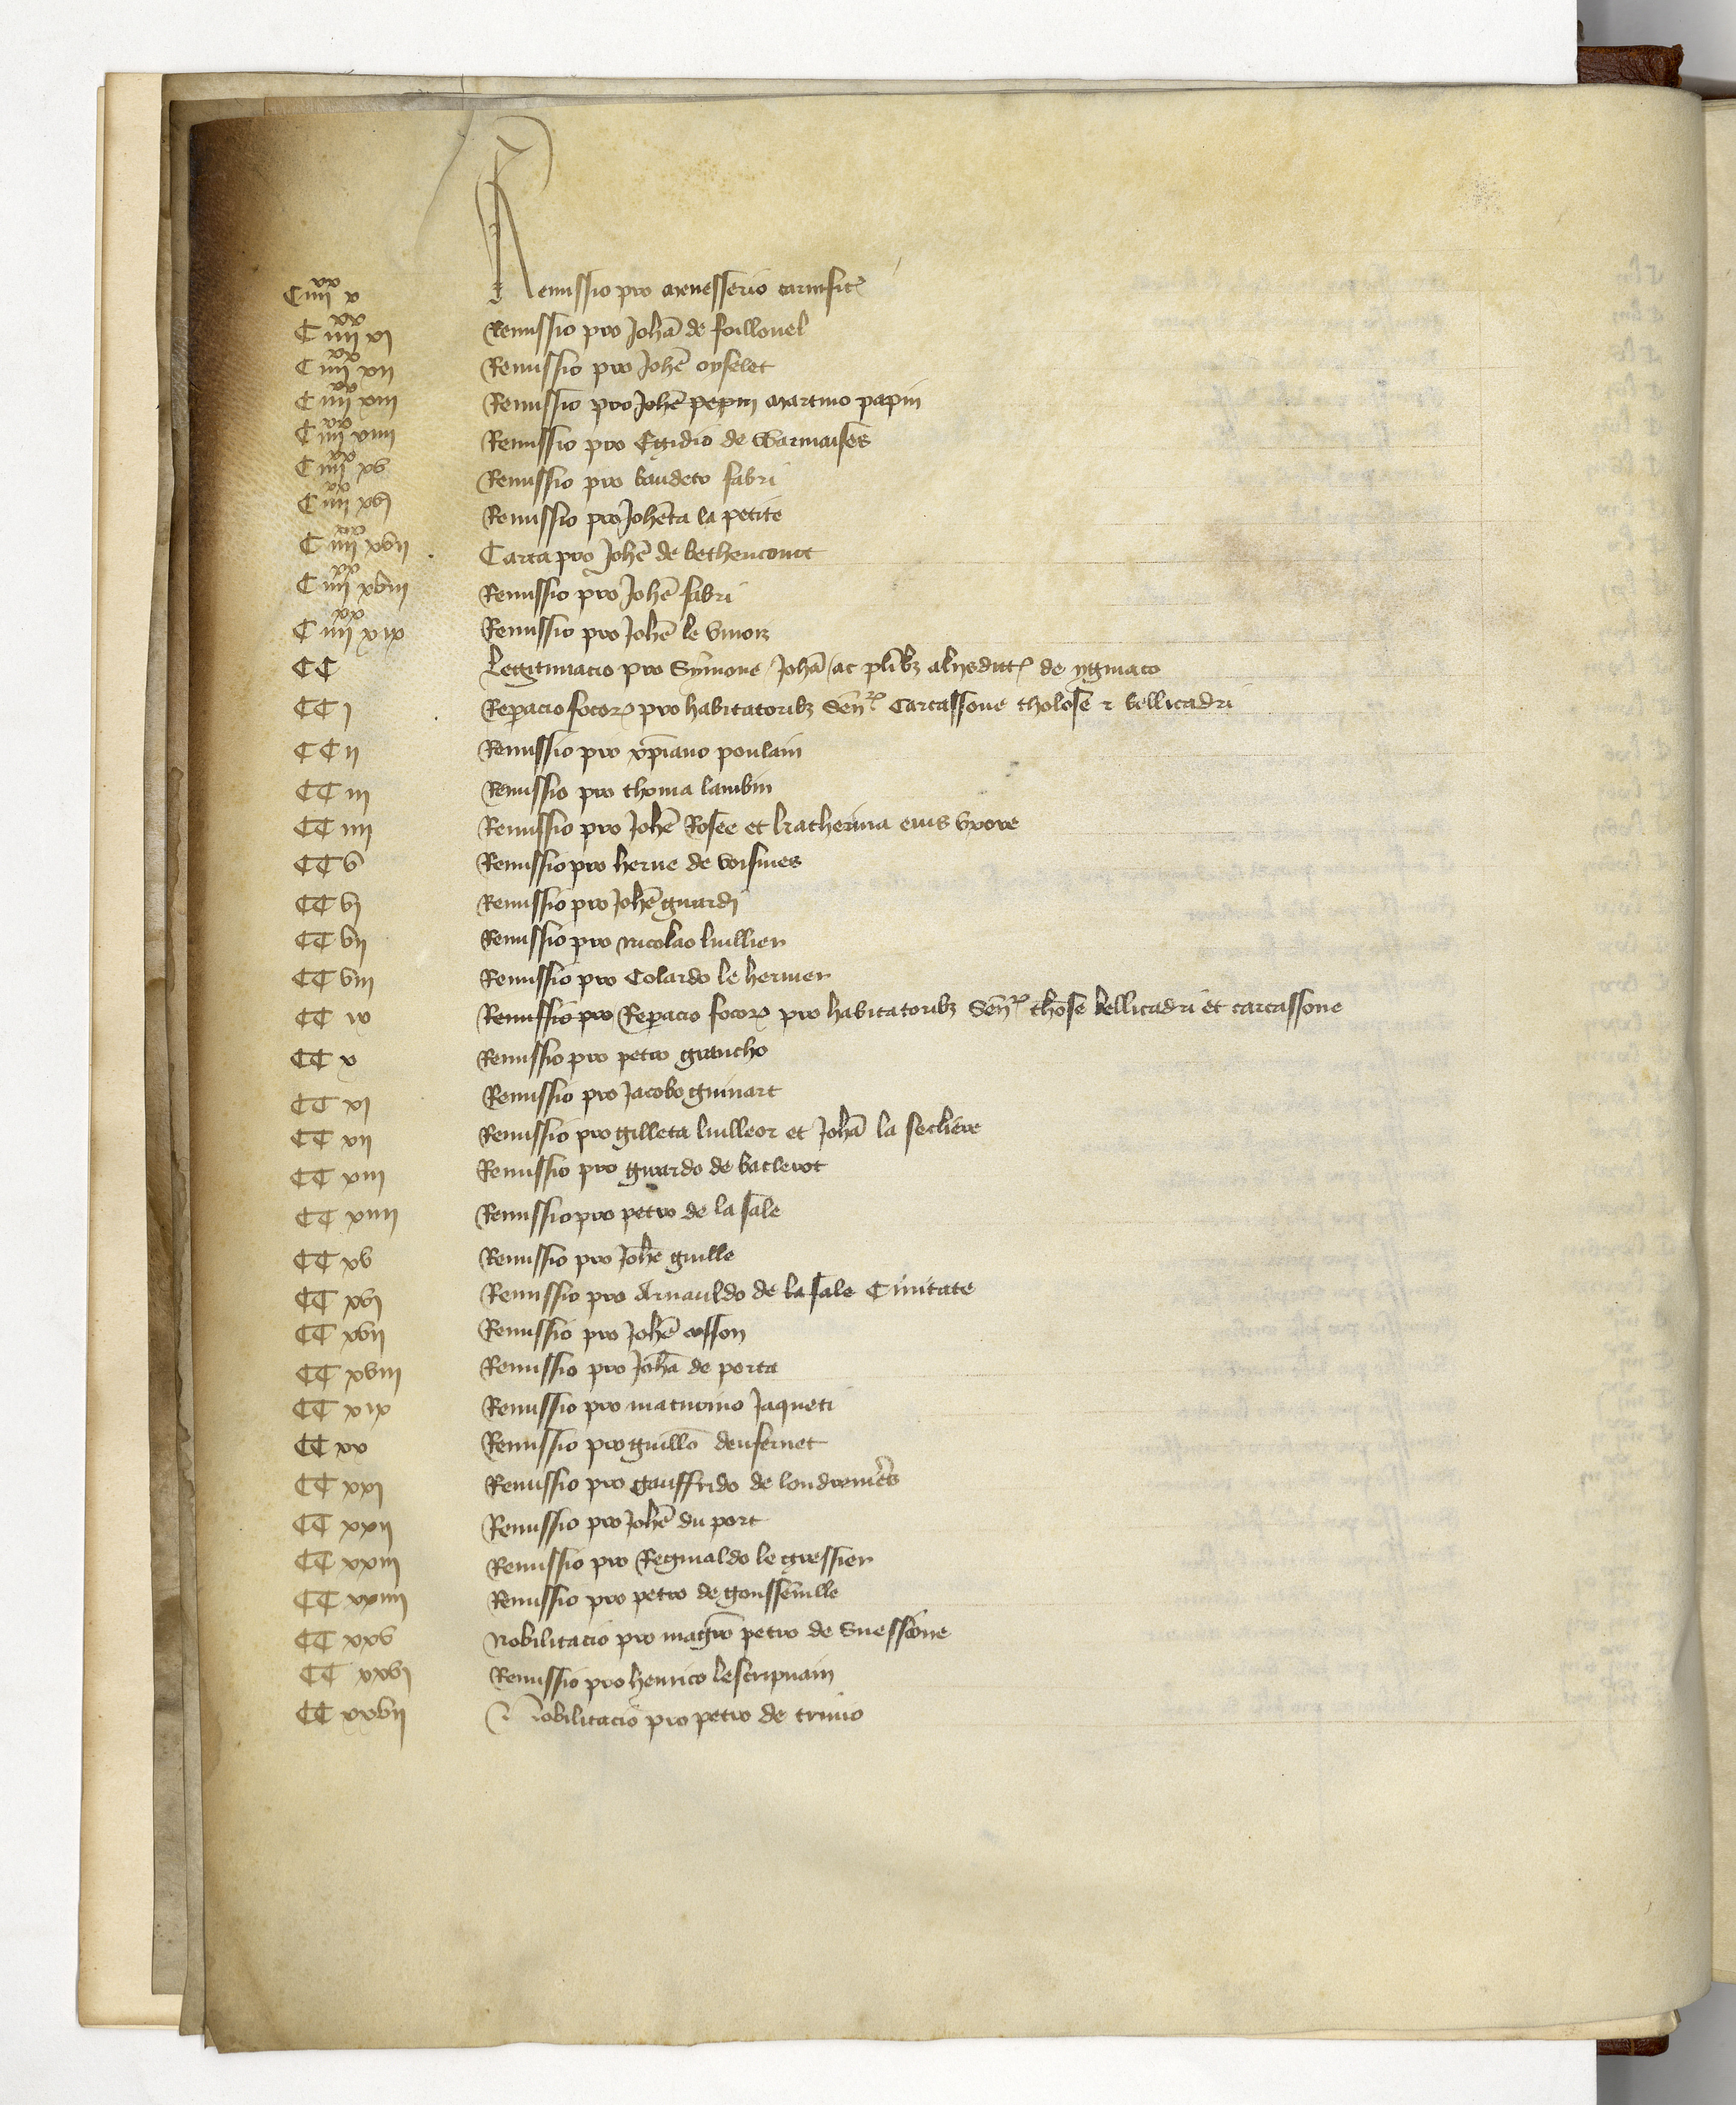 C iiii^xx x Remissio pro Menesserio carnific̄
C iiii^xx xi Remissio pro Johā de foillouel
C iiii^xx xii Remissio pro Johē oyselet
C iiii^xx xiii Remissio pro Johē pepin Martino papin
C iiii^xx xiiii Remissio pro Egidio de Warmaises
C iiii^xx xv Remissio pro baudeto fabri
C iiii^xx xvi Remissio pro Johēta la petite
C iiii^xx xvii Carta pro Johē de bethencourt
C iiii^xx xviii Remissio pro Johē fabri
C iiii^xx xix Remissio pro Johē le
CC Legitimacio pro Symone Johā ac plībz alijs dict̄ de ygniaco
CC i Rep̄acio focoꝝ pro habitatoribz Sen̄ Carcassone tholose ⁊ bellicadri
CC ii Remissio pro xp̄iano poulain
CC iii Remissio pro thoma lambin
CC iiii Remissio pro Johē Rosee et katherina eius vxore
CC v Remissio pro herue de voisines
CC vi Remissio pro Johē guardi
CC vii Remissio pro Nicolao luillier
CC viii Remissio pro Colardo le hermer
CC ix Remissio pro Rep̄acio focoꝝ pro habitatoribz Sen̄ thōse bellicadri et carcassone
CC x Remissio pro petro graucho
CC xi Remissio pro Jacobo guinart
CC xii Remissio pro gilleta luilleor et Johā la secliere
CC xiii Remissio pro girardo de baclerot
CC xiiii Remissio pro petro de la sale
CC xv Remissio pro Johē guille
CC xvi Remissio pro Arnauldo de la sale Ciuitate
CC xvii Remissio pro Johē cosson
CC xviii Remissio pro Johā de porta
CC xix Remissio pro maturino Jaqueti
CC xx Remissio pro guillo denfernet
CC xxi Remissio pro gauffrido de
CC xxii Remissio pro Johē du port
CC xxiii Remissio pro Reginaldo le gressier
CC xxiiii Remissio pro petro de goussenuille
CC xxv Nobilitacio pro magrō petro de Suessione
CC xxvi Remissio pro henrico lescripuain
CC xxvii Nobilitacio pro petro de triuio